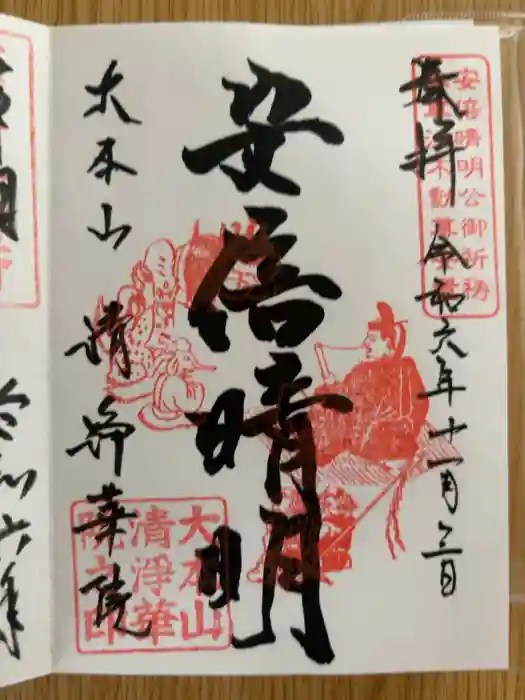 奉拝
令和六年十一月三日
安倍晴明公御祈祷
不動尊
安倍晴明
大本山
清浄華院
大本山
清浄華
院之印
令和六年